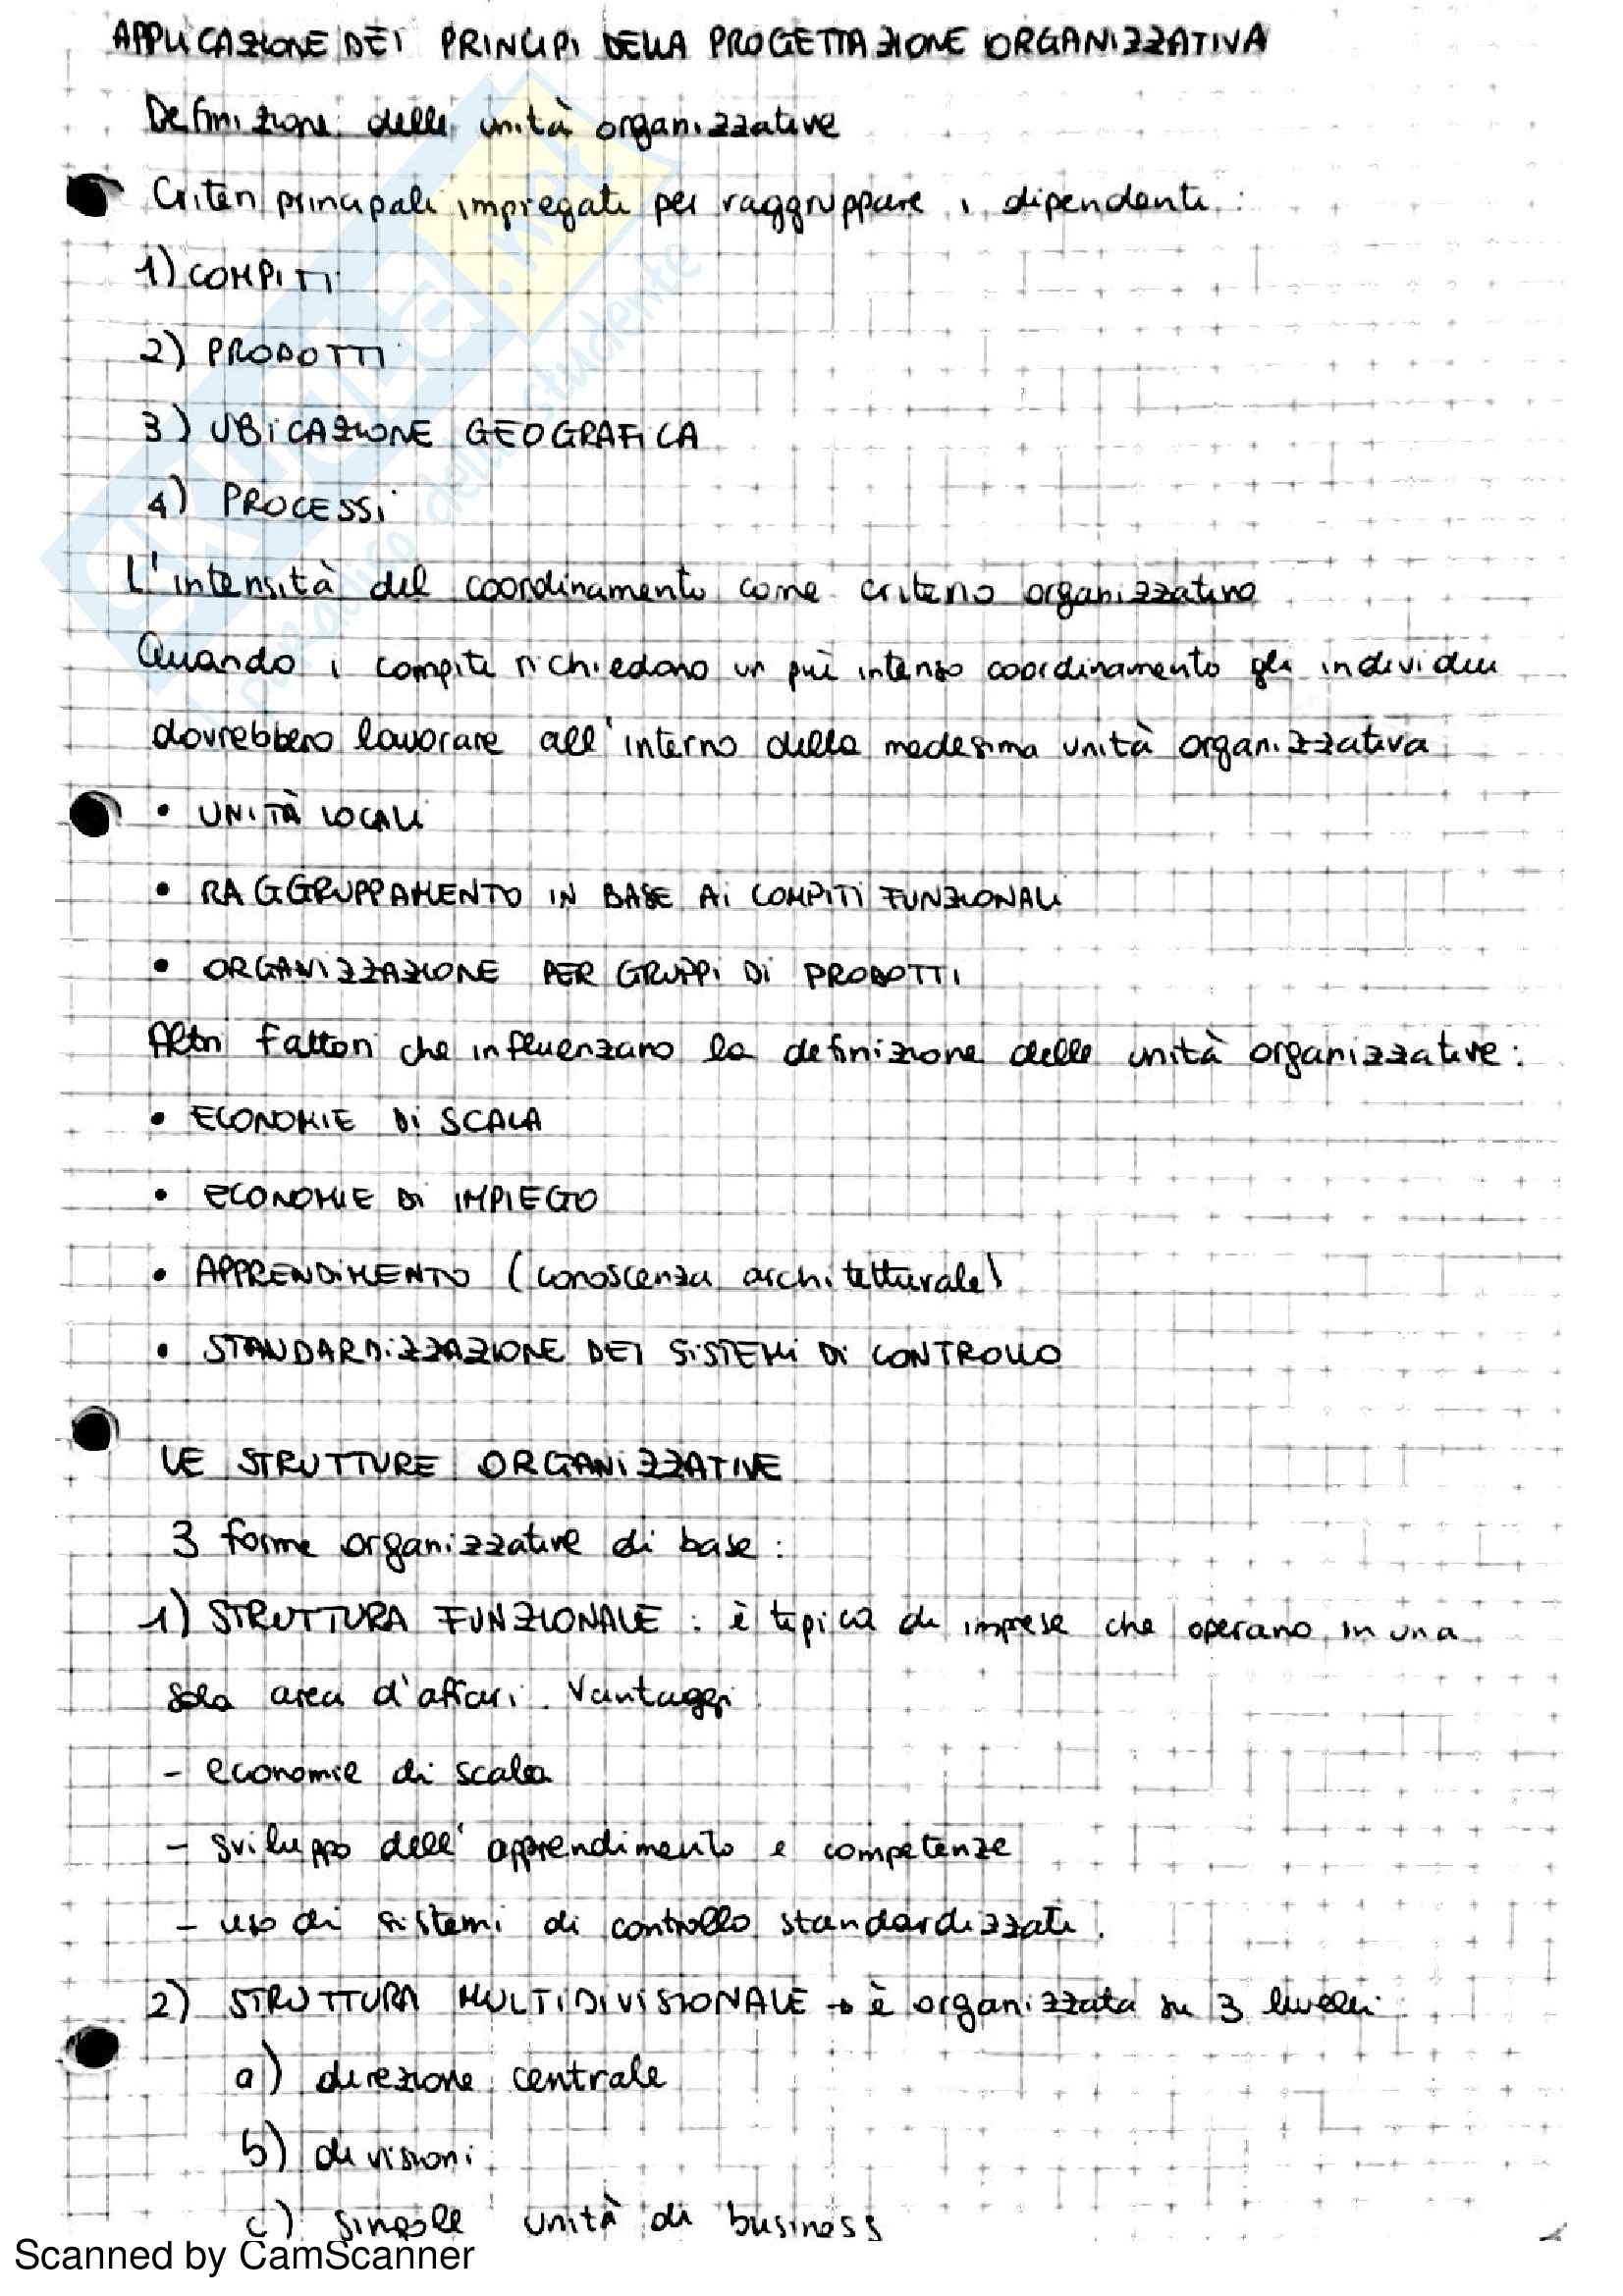 APPLICAZIONE DEI PRINCIPI DELLA PROGETTAZIONE ORGANIZZATIVA
Definizione delle unità organizzative
Criteri principali impiegati per raggruppare i dipendenti:
1) COMPITI
2) PRODOTTI
3) UBICAZIONE GEOGRAFICA
4) PROCESSI
L'intensità del coordinamento come criterio organizzativo
Quando i compiti richiedono un più intenso coordinamento gli individui
dovrebbero lavorare all'interno della medesima unità organizzativa
• UNITÀ LOCALI
• RAGGRUPPAMENTO IN BASE AI COMPITI FUNZIONALI
• ORGANIZZAZIONE PER GRUPPI DI PRODOTTI
Altri fattori che influenzano la definizione delle unità organizzative:
• ECONOMIE DI SCALA
• ECONOMIE DI IMPIEGO
• APPRENDIMENTO (conoscenza architetturale)
• STANDARDIZZAZIONE DEI SISTEMI DI CONTROLLO
LE STRUTTURE ORGANIZZATIVE
3 forme organizzative di base:
1) STRUTTURA FUNZIONALE: è tipica di imprese che operano in una
sola area d'affari. Vantaggi
- economie di scala
- sviluppo dell'apprendimento e competenze
- uso di sistemi di controllo standardizzati.
2) STRUTTURA MULTIDIVISIONALE → è organizzata su 3 livelli
a) direzione centrale
b) divisioni
c) singole unità di business
Scanned by CamScanner